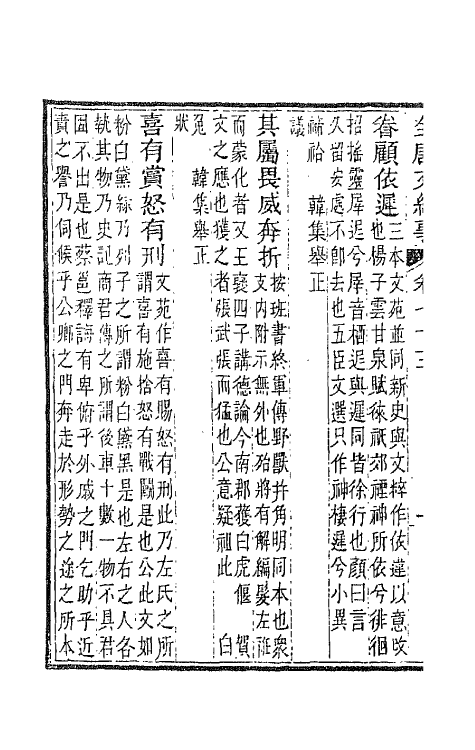 全唐文紀事 卷七十三 一
眷顧依遲三本文苑並同新史與文粹作依違以意攷
也楊子雲甘泉賦徠祇郊禋神所依兮徘徊
招搖靈犀迟兮犀音栖迟與遲同皆徐行也顏曰言
久留安處不卽去也五臣文選只作神棲遲兮小異
禘祫 韓集舉正
議
其屬畏威奔折按班書終軍傳野獸幷角明同本也衆
支內附示無外也殆將有解編髮左衽
而蒙化者又王襃四子講德論今南郡獲白虎偃 賀
文之應也獲之者張武張而猛也公意疑祖此 白
兔 韓集舉正
狀
喜有賞怒有刑文苑作喜有賜怒有刑此乃左氏之所
謂喜有施捨怒有戰鬬是也公此文如
粉白黛綠乃列子之所謂粉白黛黑是也左右之人各
執其物乃史記商君傳之所謂後車十數一物不具君
固不出是也蔡邕釋誨有卑俯乎外戚之門乞助乎近
貴之譽乃伺候乎公卿之門奔走於形勢之途之所本